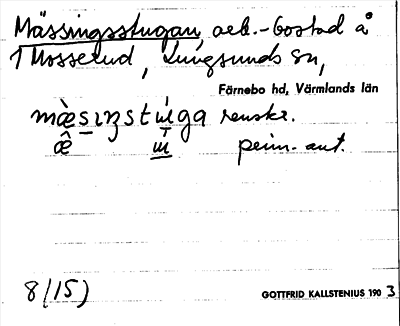 Mässingsstugan, arb.-bostad å
1 Mosserud, Lungsunds sn,
Färnebo hd, Värmlands län
mæ̀sıŋstúga renskr.
æ̂ penn. ant.
8 (15)
GOTTFRID KALLSTENIUS 190 3